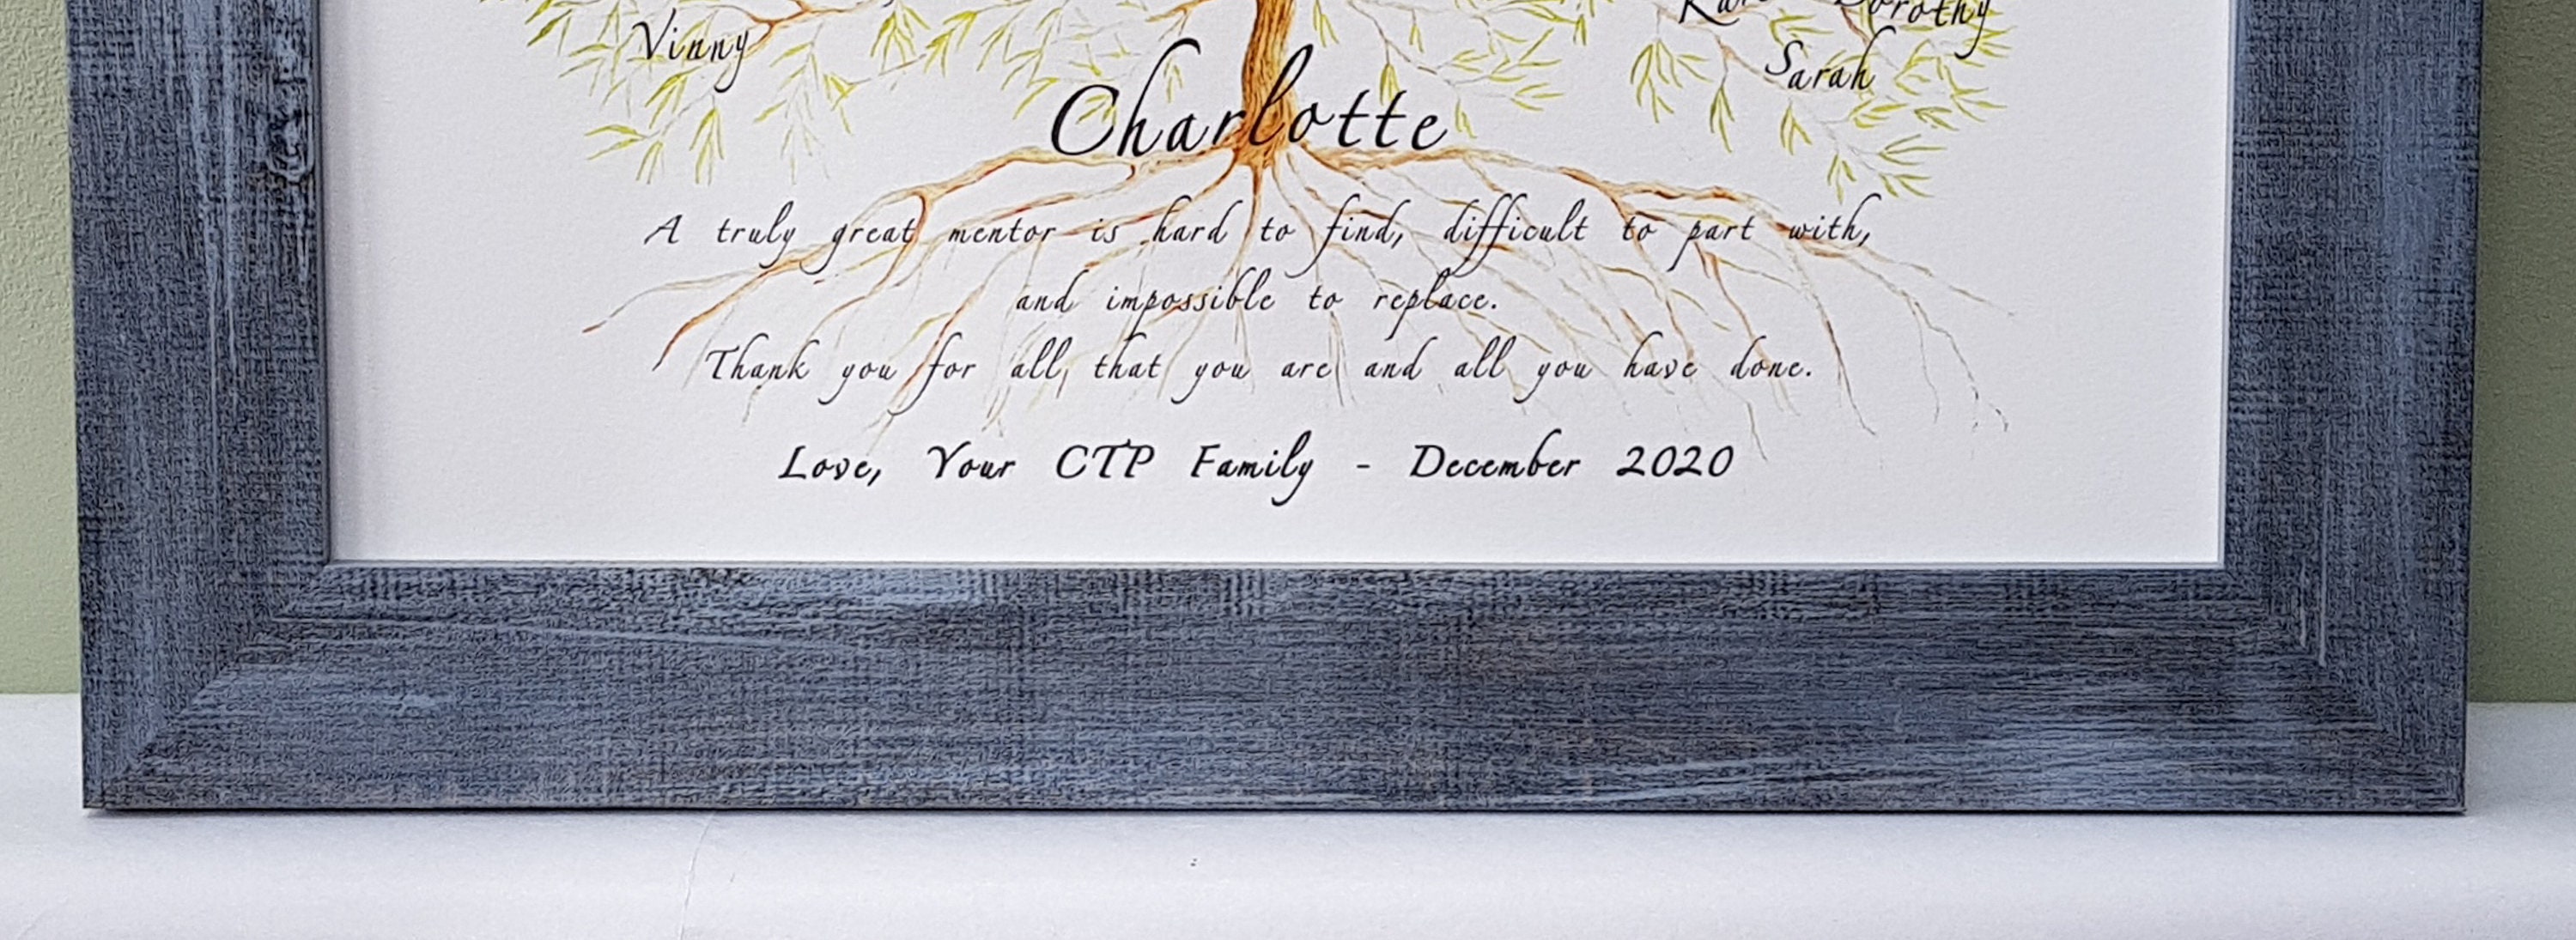 Dorothy
Vinny
Sarah
Charlotte
A truly great mentor is hard to find, difficult to part with,
and impossible to replace.
Thank you for all, that you are and all you have done.
Love, Your CTP Family - December 2020